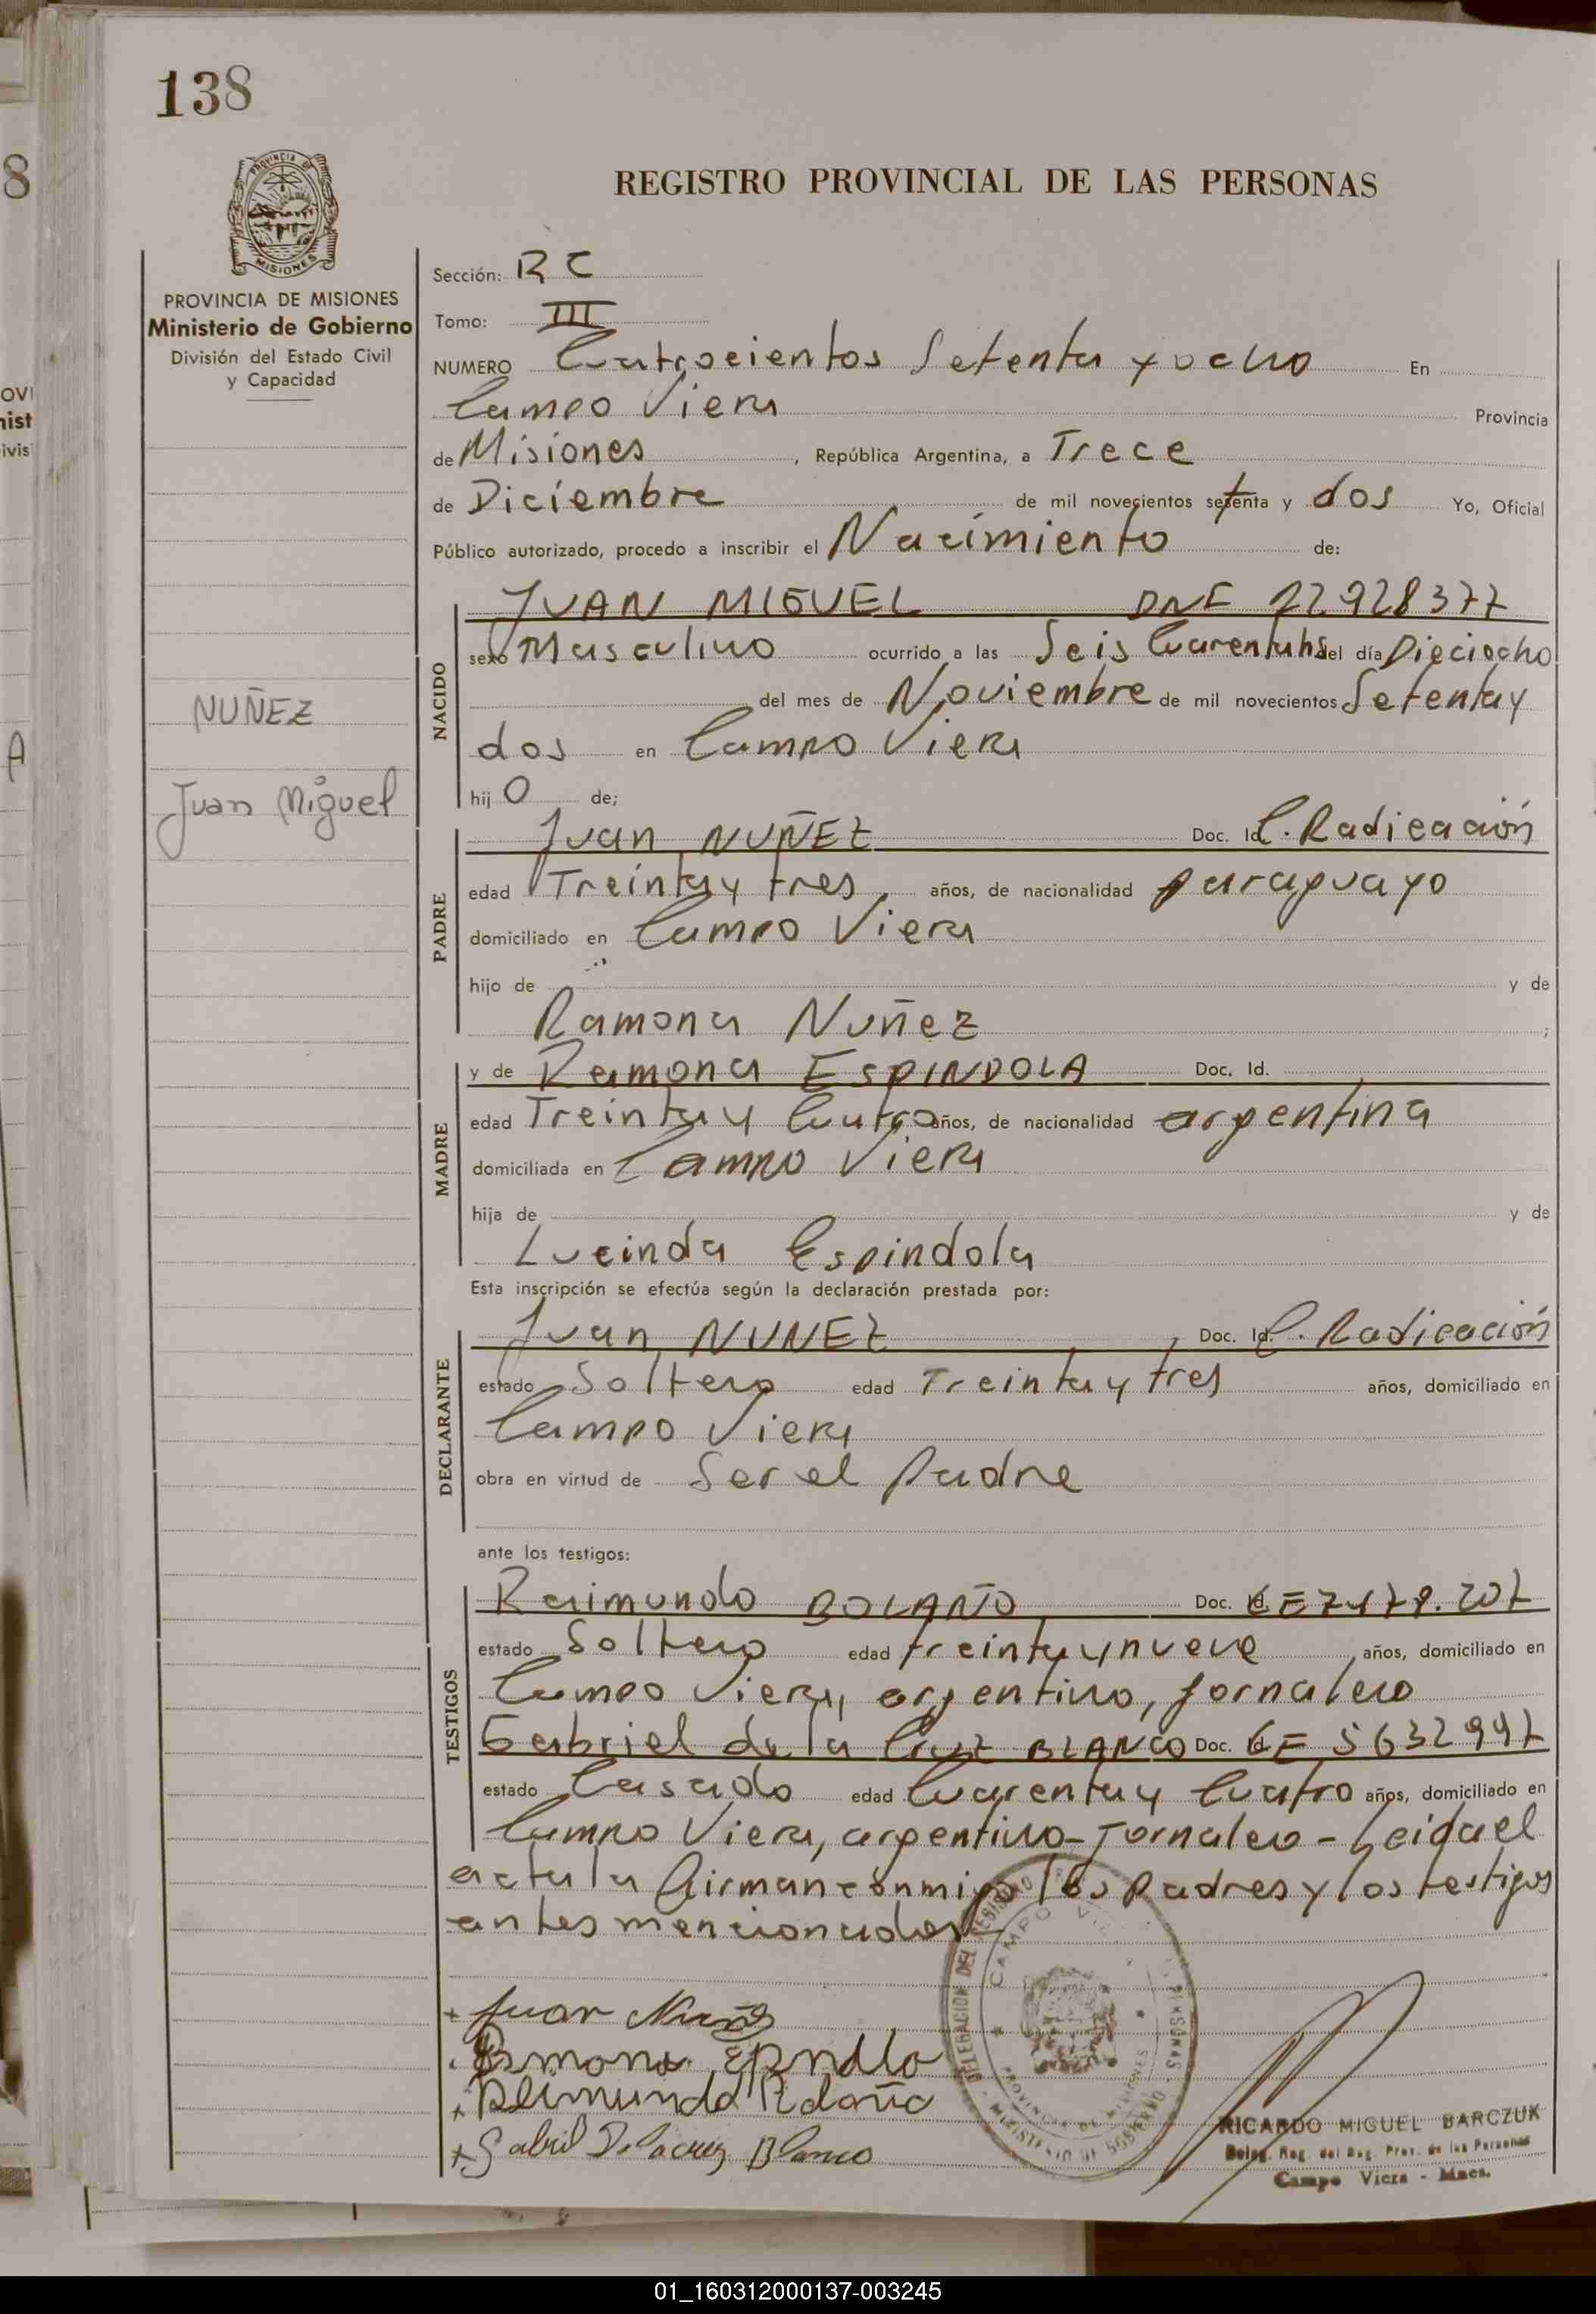 138
8
REGISTRO PROVINCIAL DE LAS PERSONAS
PROVINCIA DE MISIONES
PROVINCIA DE MISIONES
Ministerio de Gobierno
División del Estado Civil
y Capacidad
NUÑEZ
Juan Miguel
Sección: RC
Tomo: III
NUMERO Cuatrocientos Setenta y ocho En
Campo Viera Provincia
de Misiones, República Argentina, a Trece
de Diciembre de mil novecientos setenta y dos Yo, Oficial
Público autorizado, procedo a inscribir el Nacimiento de:
NACIDO
JUAN MIGUEL DNI 22928377
sexo Masculino ocurrido a las Seis Cuarenta hs del día Dieciocho
del mes de Noviembre de mil novecientos Setenta y
dos en Campo Viera
hijo de;
PADRE
Juan NUÑEZ Doc. Id. C. Radicación
edad Treinta y tres años, de nacionalidad paraguayo
domiciliado en Campo Viera
hijo de y de
Ramona Nuñez ;
MADRE
y de Ramona ESPINDOLA Doc. Id.
edad Treinta y Cuatro años, de nacionalidad argentina
domiciliada en Campo Viera
hija de y de
Lucinda Espindola
Esta inscripción se efectúa según la declaración prestada por:
DECLARANTE
Juan NUNEZ Doc. Id. C. Radicación
estado Soltero edad Treinta y tres años, domiciliado en
Campo Viera
obra en virtud de Ser el Padre
ante los testigos:
TESTIGOS
Raimundo BOLAÑO Doc. Id. LE
estado Soltero edad treinta y nueve años, domiciliado en
Campo Viera, argentino, jornalero
Gabriel de la Cruz BLANCO Doc. Id. LE 5632997
estado Casado edad Cuarenta y Cuatro años, domiciliado en
Campo Viera, argentino-Jornalero-Leida el
acta la firman conmigo los padres y los testigos
antes mencionados
DELEGACION DEL REGISTRO PERSONAS
CAMPO VIERA
PROVINCIA DE MISIONES
MINISTERIO DE GOBIERNO
+ Juan Nuñez
Ramona Epndla
+ Reimundo Bolaño
+ Gabril De la cruz Blanco
RICARDO MIGUEL BARCZUK
Deleg. Reg. del Reg. Prov. de las Personas
Campo Viera - Mnes.
01_160312000137-003245